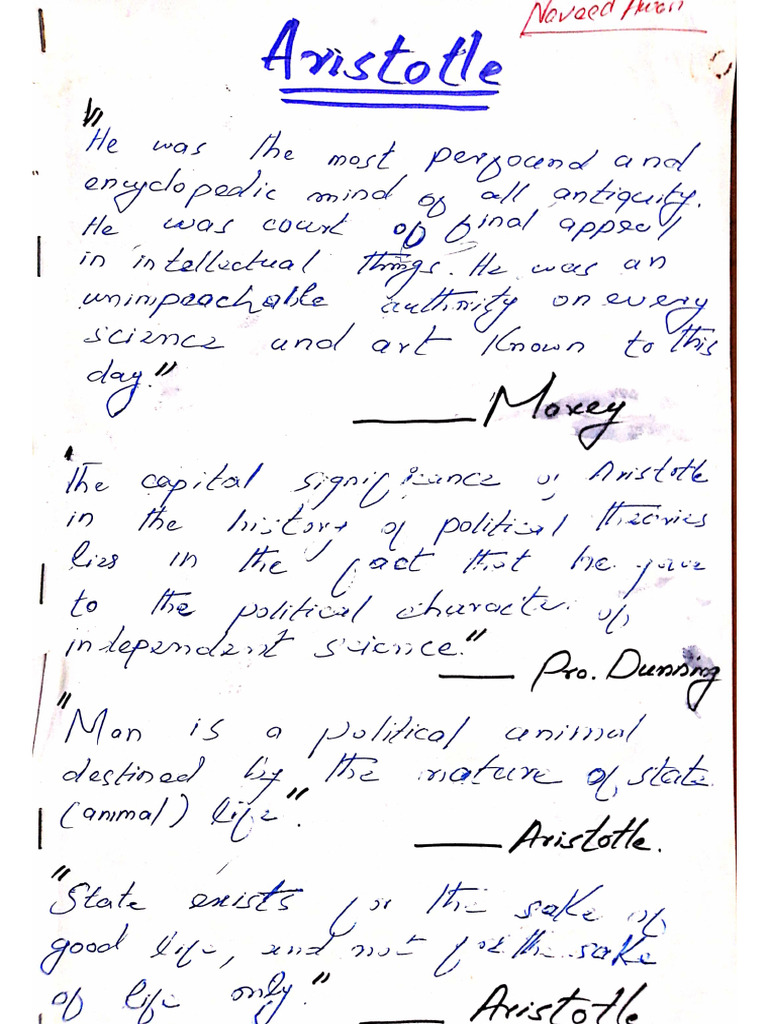 Naveed
Aristotle
"He was the most perfound and
encyclopedic mind of all antiquity.
He was court of final appeall
in intellectual things. He was an
unimpeachable authirity on every
science and art known to this
day."
Maxey
"The capital significance of Aristotle
in the history of political theories
lies in the fact that he gave
to the political character of
independent science."
Pro. Dunning
"Man is a political animal
destined by the nature of state
(animal) life".
Aristotle.
"State exists for the sake of
good life, and not for the sake
of life only."
Aristotle